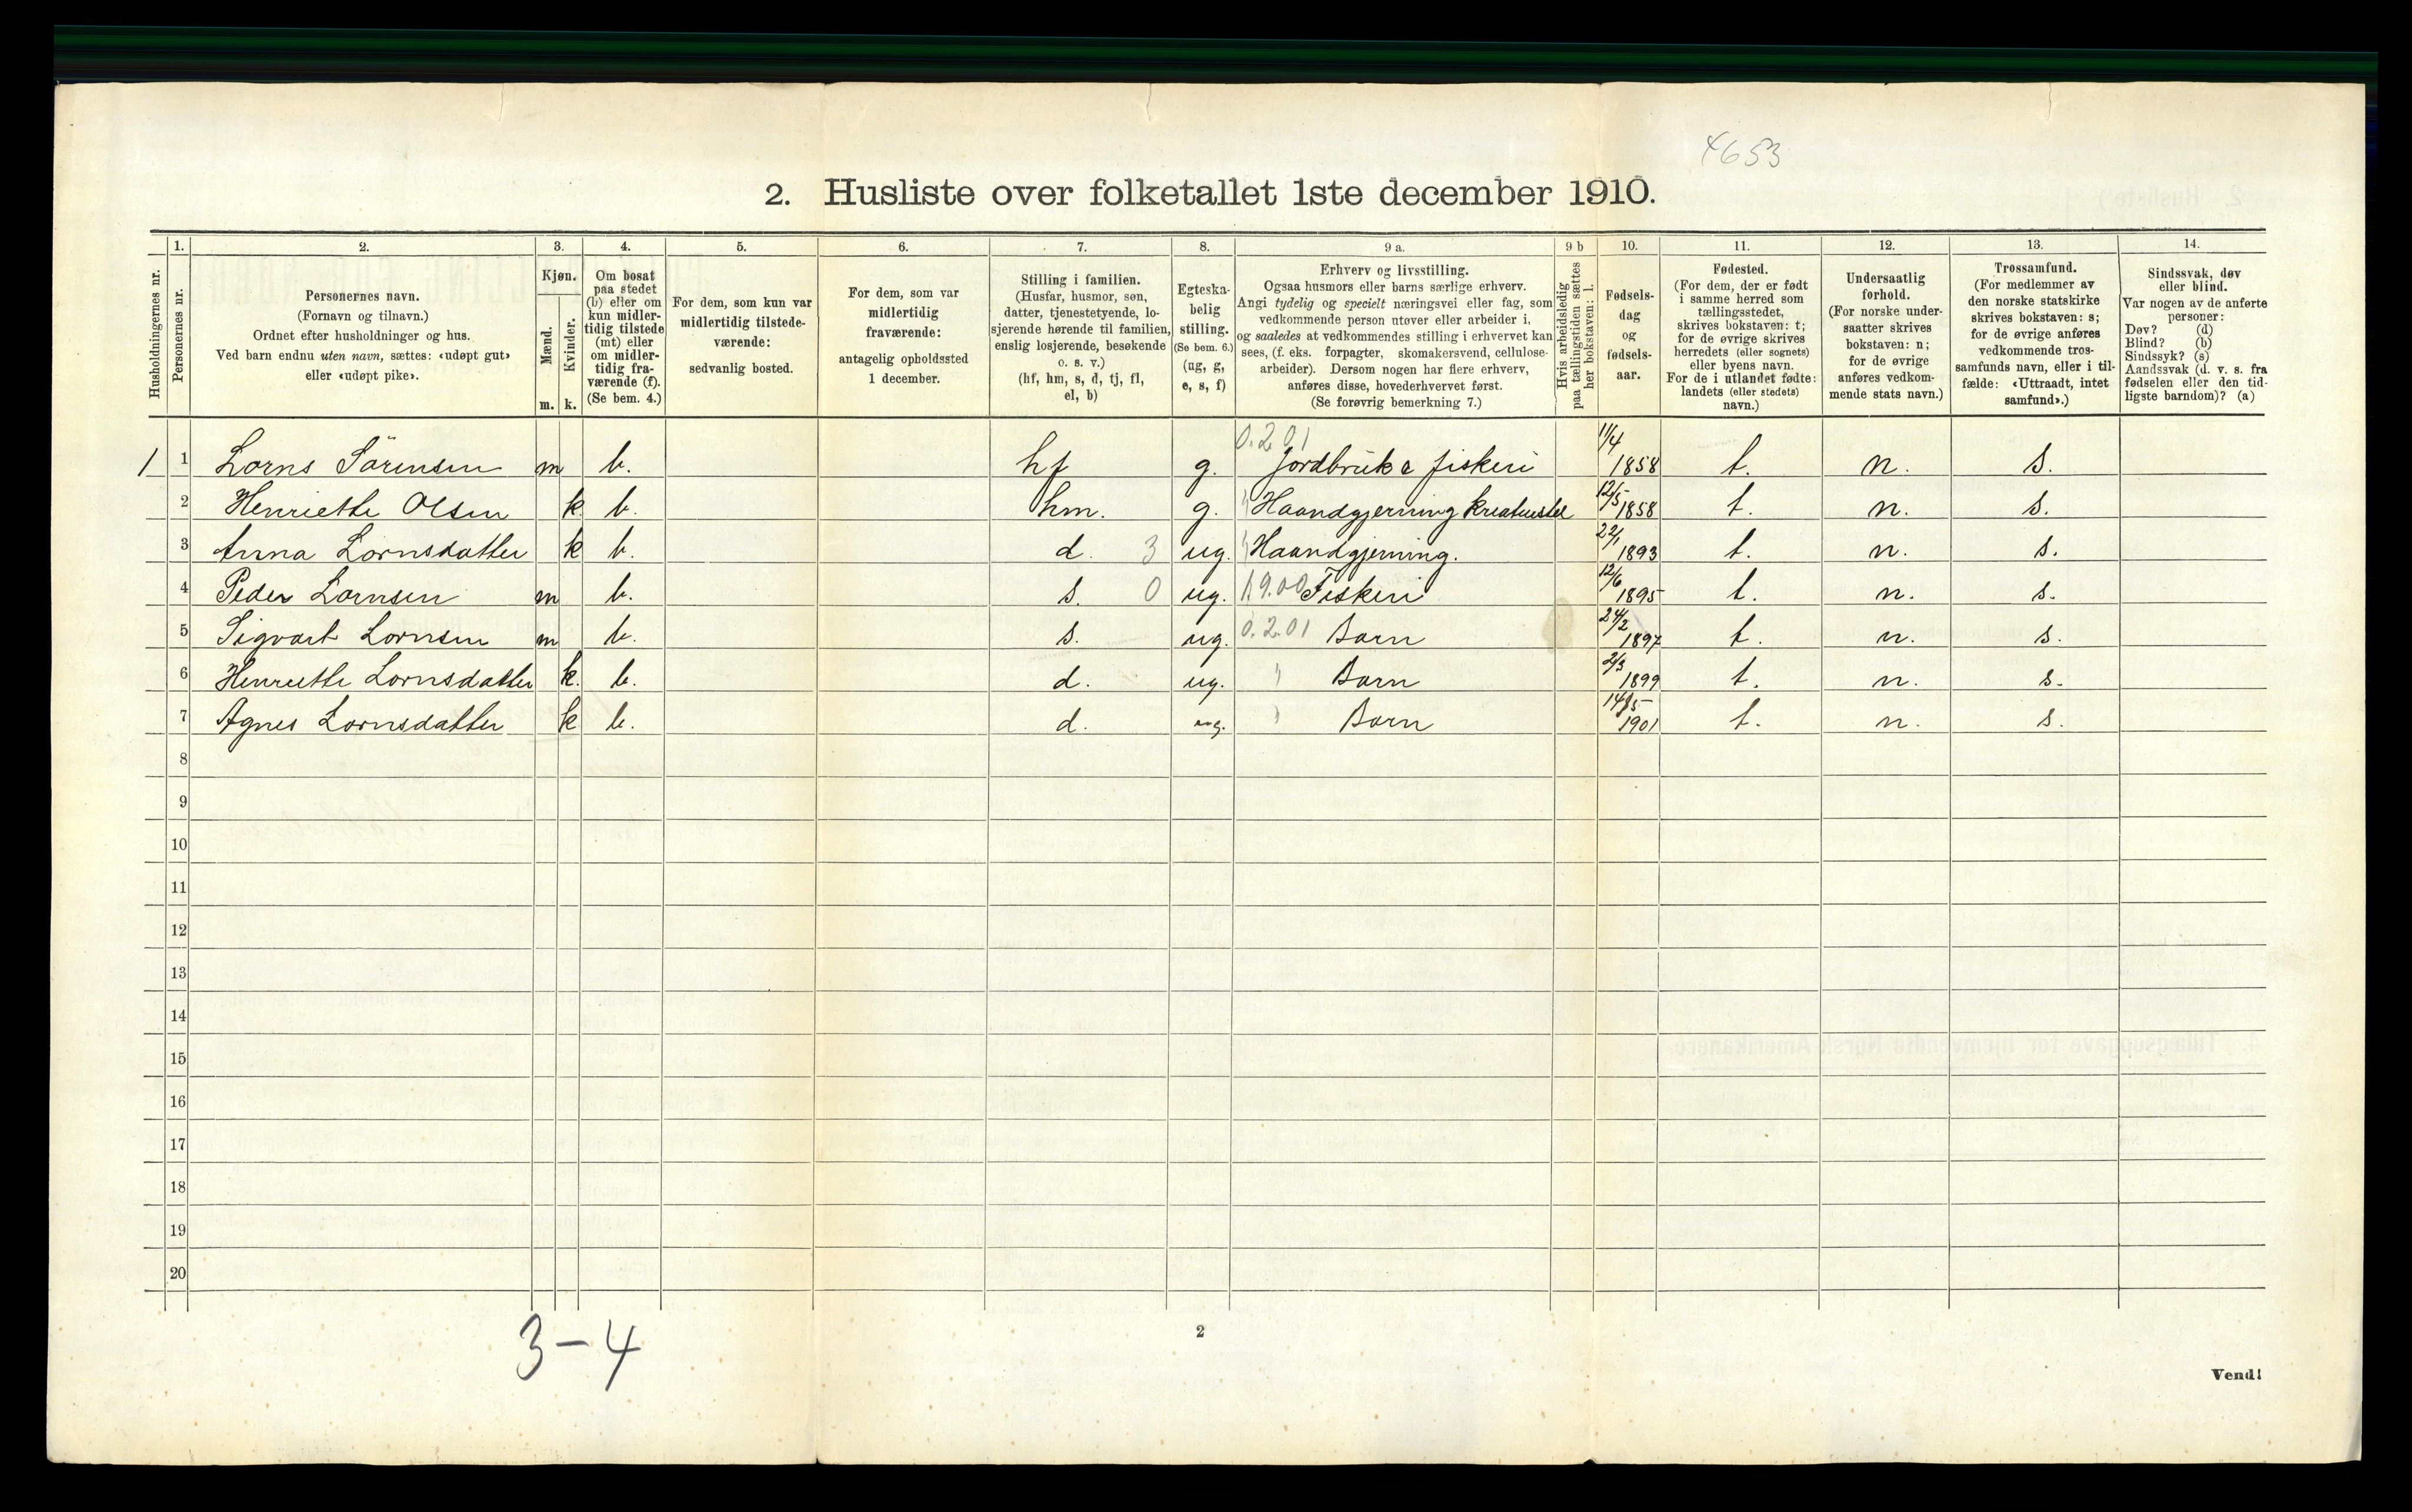 4653
2. Husliste over folketallet 1ste december 1910.
Husholdningernes nr.
1.
Personernes nr.
2.
Personernes navn.
(Fornavn og tilnavn.)
Ordnet efter husholdninger og hus.
Ved barn endnu uten navn, sættes: «udøpt gut»
eller «udøpt pike».
3.
Kjøn.
Mænd.
m.
Kvinder.
k.
4.
Om bosat
paa stedet
(b) eller om
kun midler-
tidig tilstede
(mt) eller
om midler-
tidig fra-
værende (f).
(Se bem. 4.)
5.
For dem, som kun var
midlertidig tilstede-
værende:
sedvanlig bosted.
6.
For dem, som var
midlertidig
fraværende:
antagelig opholdssted
1 december.
7.
Stilling i familien.
(Husfar, husmor, søn,
datter, tjenestetyende, lo-
sjerende hørende til familien,
enslig losjerende, besøkende
o. s. v.)
(hf, hm, s, d, tj, fl,
el, b)
8.
Egteska-
belig
stilling.
(Se bem. 6.)
(ug, g,
e, s, f)
9 a.
Erhverv og livsstilling.
Ogsaa husmors eller barns særlige erhverv.
Angi tydelig og specielt næringsvei eller fag, som
vedkommende person utøver eller arbeider i,
og saaledes at vedkommendes stilling i erhvervet kan
sees, (f. eks. forpagter, skomakersvend, cellulose-
arbeider). Dersom nogen har flere erhverv,
anføres disse, hovederhvervet først.
(Se forøvrig bemerkning 7.)
9 b
Hvis arbeidsledig
paa tællingstiden sættes
her bokstaven: l.
10.
Fødsels-
dag
og
fødsels-
aar.
11.
Fødested.
(For dem, der er født
i samme herred som
tællingsstedet,
skrives bokstaven: t;
for de øvrige skrives
herredets (eller sognets)
eller byens navn.
For de i utlandet fødte:
landets (eller stedets)
navn.)
12.
Undersaatlig
forhold.
(For norske under-
saatter skrives
bokstaven: n;
for de øvrige
anføres vedkom-
mende stats navn.)
13.
Trossamfund.
(For medlemmer av
den norske statskirke
skrives bokstaven: s;
for de øvrige anføres
vedkommende tros-
samfunds navn, eller i til-
fælde: «Uttraadt, intet
samfund».)
14.
Sindssvak, døv
eller blind.
Var nogen av de anførte
personer:
Døv? (d)
Blind? (b)
Sindssyk? (s)
Aandssvak (d. v. s. fra
fødselen eller den tid-
ligste barndom)? (a)
1 1 Lorns Sörensen m b. hf g. 0.2.01 Jordbruk & fiskeri 11/4 1858 t. n. s.
2 Henriette Olsen k. b. hm. g. " Haandgjerning kreaturstel 12/5 1858 t. n. s.
3 Anna Lornsdatter k b. d. 3 ug. " Haandgjerning. 22/1 1893 t. n. s.
4 Peder Lornsen m b. s. 0 ug. 1.9.00 Fiskeri 12/6 1895 t. n. s.
5 Sigvart Lornsen m b. s. ug. 0.2.01 Barn 24/2 1897 t. n. s.
6 Henriette Lornsdatter k. b. d. ug. " Barn 2/3 1899 t. n. s.
7 Agnes Lornsdatter k b. d. ug. " Barn 14/5 1901 t. n. s.
8
9
10
11
12
13
14
15
16
17
18
19
20
3-4
2
Vend!